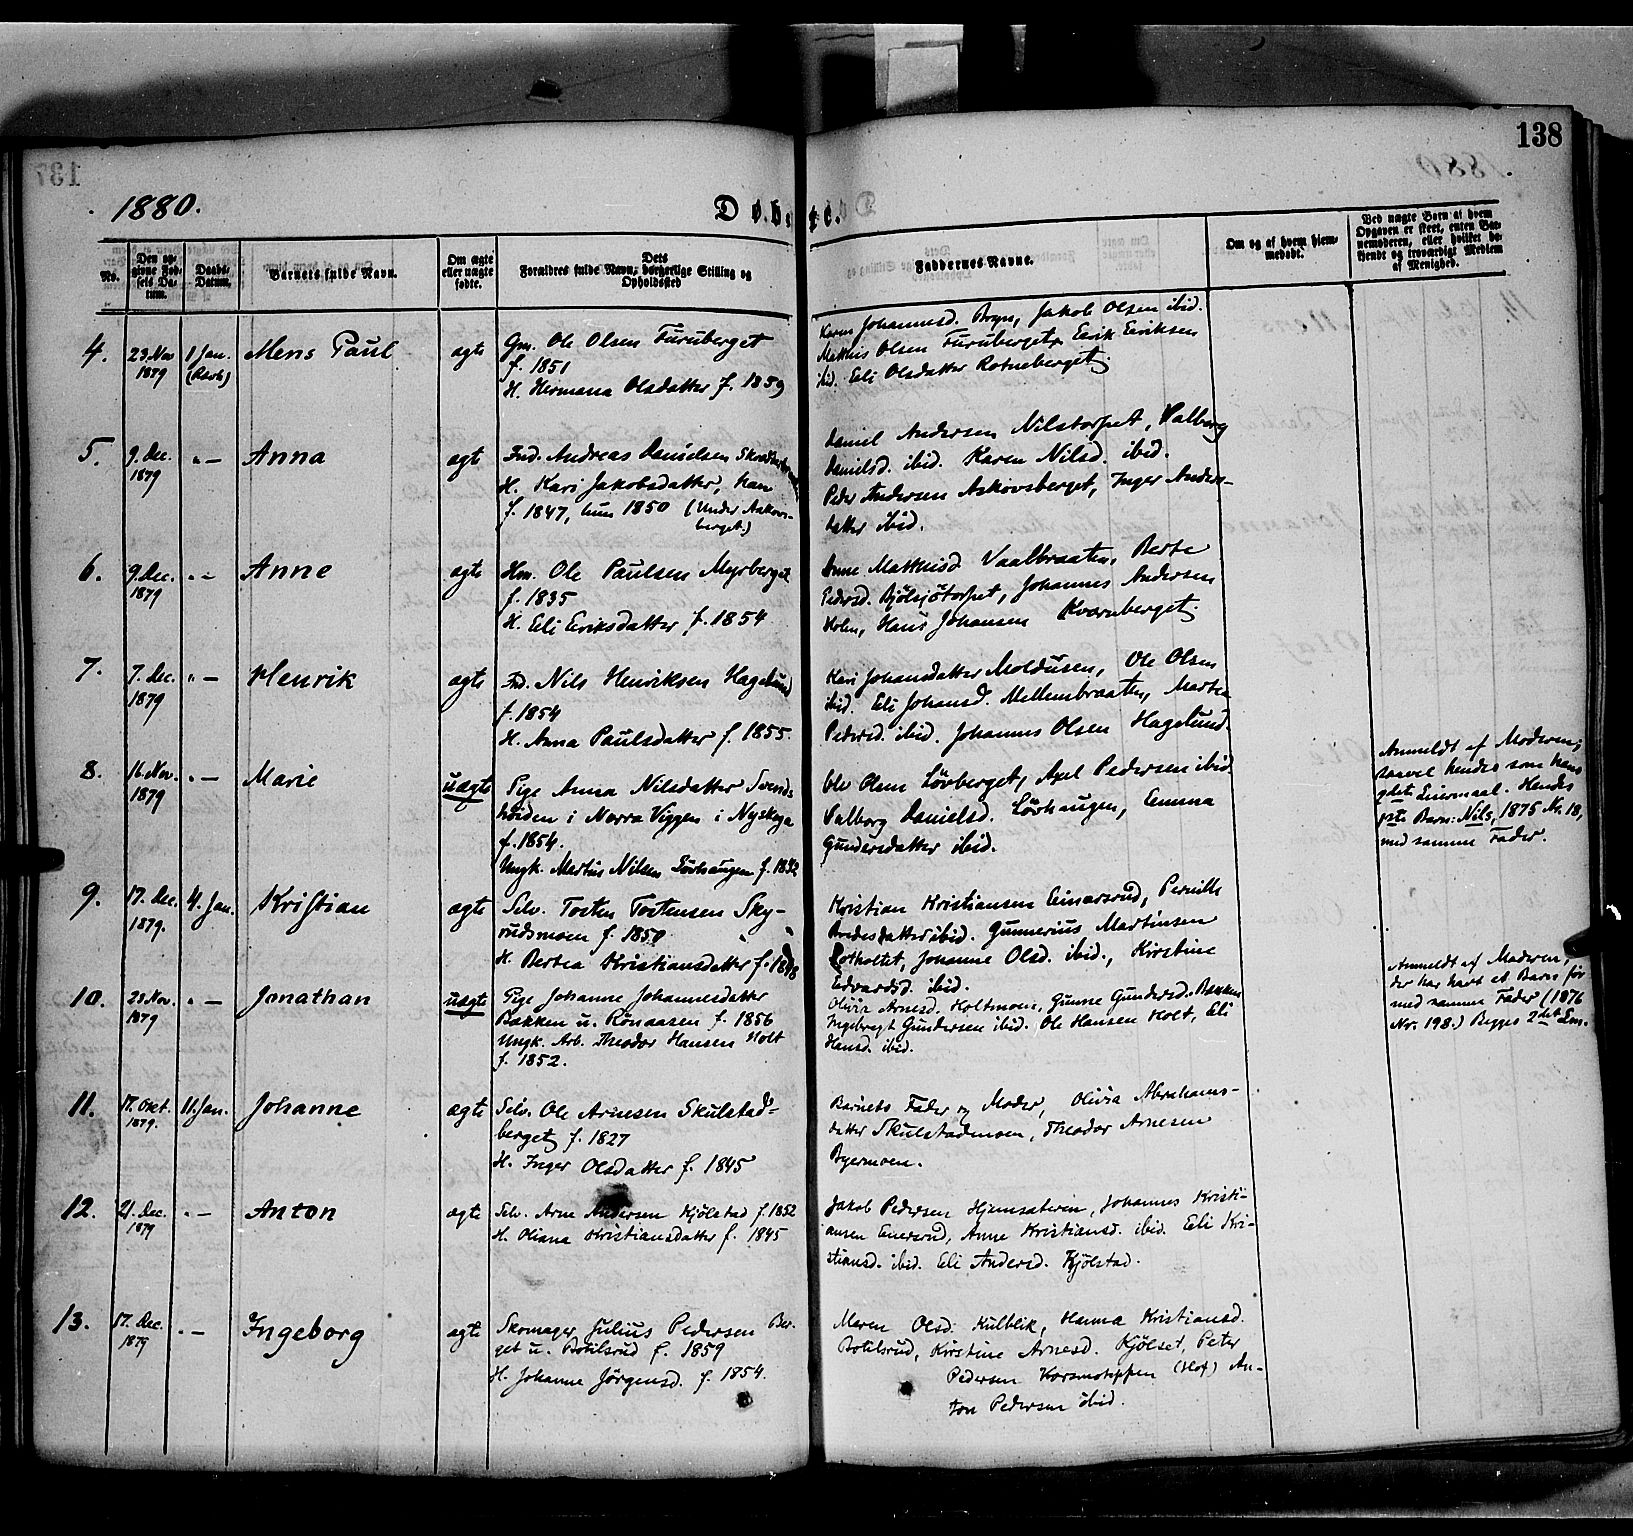 138
1880.
Døbte.
No.
Den op-
givne Fød-
sels Da-
tum.
Daabs-
Datum.
Barnets fulde Navn.
Om ægte
eller uægte
fødte.
Dets
Forældres fulde Navn, borgerlige Stilling og
Opholdssted
Faddernes Navne.
Om og af hvem hjem-
medøbt.
Ved uægte Børn af hvem
Opgaven er skeet, enten Bar-
nemoderen, eller hvilket be-
kjendt og troværdigt Medlem
af Menighed.
4.
23. Nov
1879
1 Jan.
Mens Paul
ægte
Gm. Ole Olsen Furuberget
f. 1851
H. Hermana Olsdatter f. 1859
Karen Johannesd. Jakob Olsen ibid.
Matthis Olsen Furuberget, Eerik Eeriksen
ibid. Eeli Olsdatter Rotneberget.
5.
9. Dec.
1879
"—
Anna
ægte
Ind. Andreas Danielsen
H. Kari Jakobsdatter, han
f. 1847, hun 1850 (Under Askovs-
berget.)
Daniel Andersen Nilstorpet, Valborg
Danielsd. ibid. Karen Nilsd. ibid.
Peder Andersen Askovsberget, Inger Anders-
datter ibid.
6.
9. Dec.
1879
"—
Anne
ægte
Hm. Ole Paulsen Myrberget
f. 1835
H. Eeli Eeriksdatter f. 1854
Anne Matthisd Vaalbraaten, Berte
Pedersd. Bjølsjøtorpet, Johannes Andersen
Holen, Hans Johansen Kvarnberget.
7.
7. Dec.
1879
"—
Henrik
ægte
Ind. Nils Henriksen Hagelund
f. 1854
H. Anna Paulsdatter f. 1855.
Kari Johansdatter Moldusen, Ole Olsen
ibid. Eeli Johansd. Mellembraaten, Martea
Pedersd. ibid. Johannes Olsen Hagelund.
8.
16. Nov.
1879
"—
Marie
uægte
Pige Anna Nilsdatter Svends-
høiden i Norra Viggen i Nyskoga
f. 1854.
Ungk. Martus Nilsen Løvhaugen f. 1852
Ole Olsen Løvberget, Axel Pedersen ibid
Valborg Danielsd. Løvhaugen, Eemma
Gundersdatter ibid.
Anmeldt af Moderen;
saavel hendes som hans
2det Leiermaal. Hendes
1ste Barn: Nils, 1875 Nr. 18,
med samme Fader.
9.
17. Dec.
1879.
4. Jan.
Kristian
ægte
Selv. Tosten Tostensen Sky-
rudsmoen f. 1850
H. Bertea Kristiansdatter f. 1848
Kristian Kristiansen Einarsrud, Pernille
Bredesdatter ibid. Gunnerius Martinsen
Rotholtet, Johanne Olsd. ibid., Kirstine
Edvardsd. ibid.
10.
28. Nov.
1879
"—
Jonathan
uægte
Pige Johanne Johannesdatter
Bakken u. Rönaasen f. 1856
Ungk. Arb. Theodor Hansen Holt
f. 1852.
Olivia Arnesd. Holtmoen, Gunne Gundersd. Bakken
Ingebregt Gundersen ibid. Ole Hansen Holt, Eli
Hansd. ibid.
Anmeldt af Moderen,
der har havt et Barn før
med samme Fader (1876
Nr. 198.) Begges 2det Lm.
11.
17. Okt.
1879.
11. Jan.
Johanne
ægte
Selv. Ole Arnesen Skulstad-
berget f. 1827
H. Inger Olsdatter f. 1845
Barnets Fader og Moder, Olivia Abrahams-
datter Skulstadmoen, Theodor Arnesen
Byermoen.
12.
21. Dec.
1879
"—
Anton
ægte
Selv. Arne Andersen Kjølstad f. 1852
H. Oliana Kristiansdatter f. 1845
Jakob Pedersen Hjemsæteren, Johannes Kristi-
ansen Enersrud, Anne Kristiansd. ibid. Eeli Kri-
stiansd. ibid. Eeli Andersd. Kjølstad.
13.
17. Dec.
1879
"—
Ingeborg
ægte
Skomager Julius Pedersen Ber-
get u. Botilsrud f. 1859
H. Johanne Jørgensd. f. 1854.
Maren Olsd. Kulblik, Hanna Kristiansd.
Botilsrud, Kirstine Arnesd. Kjølset, Peter
Pedersen Korsmotippen (Hof) An-
ton Pedersen ibid.